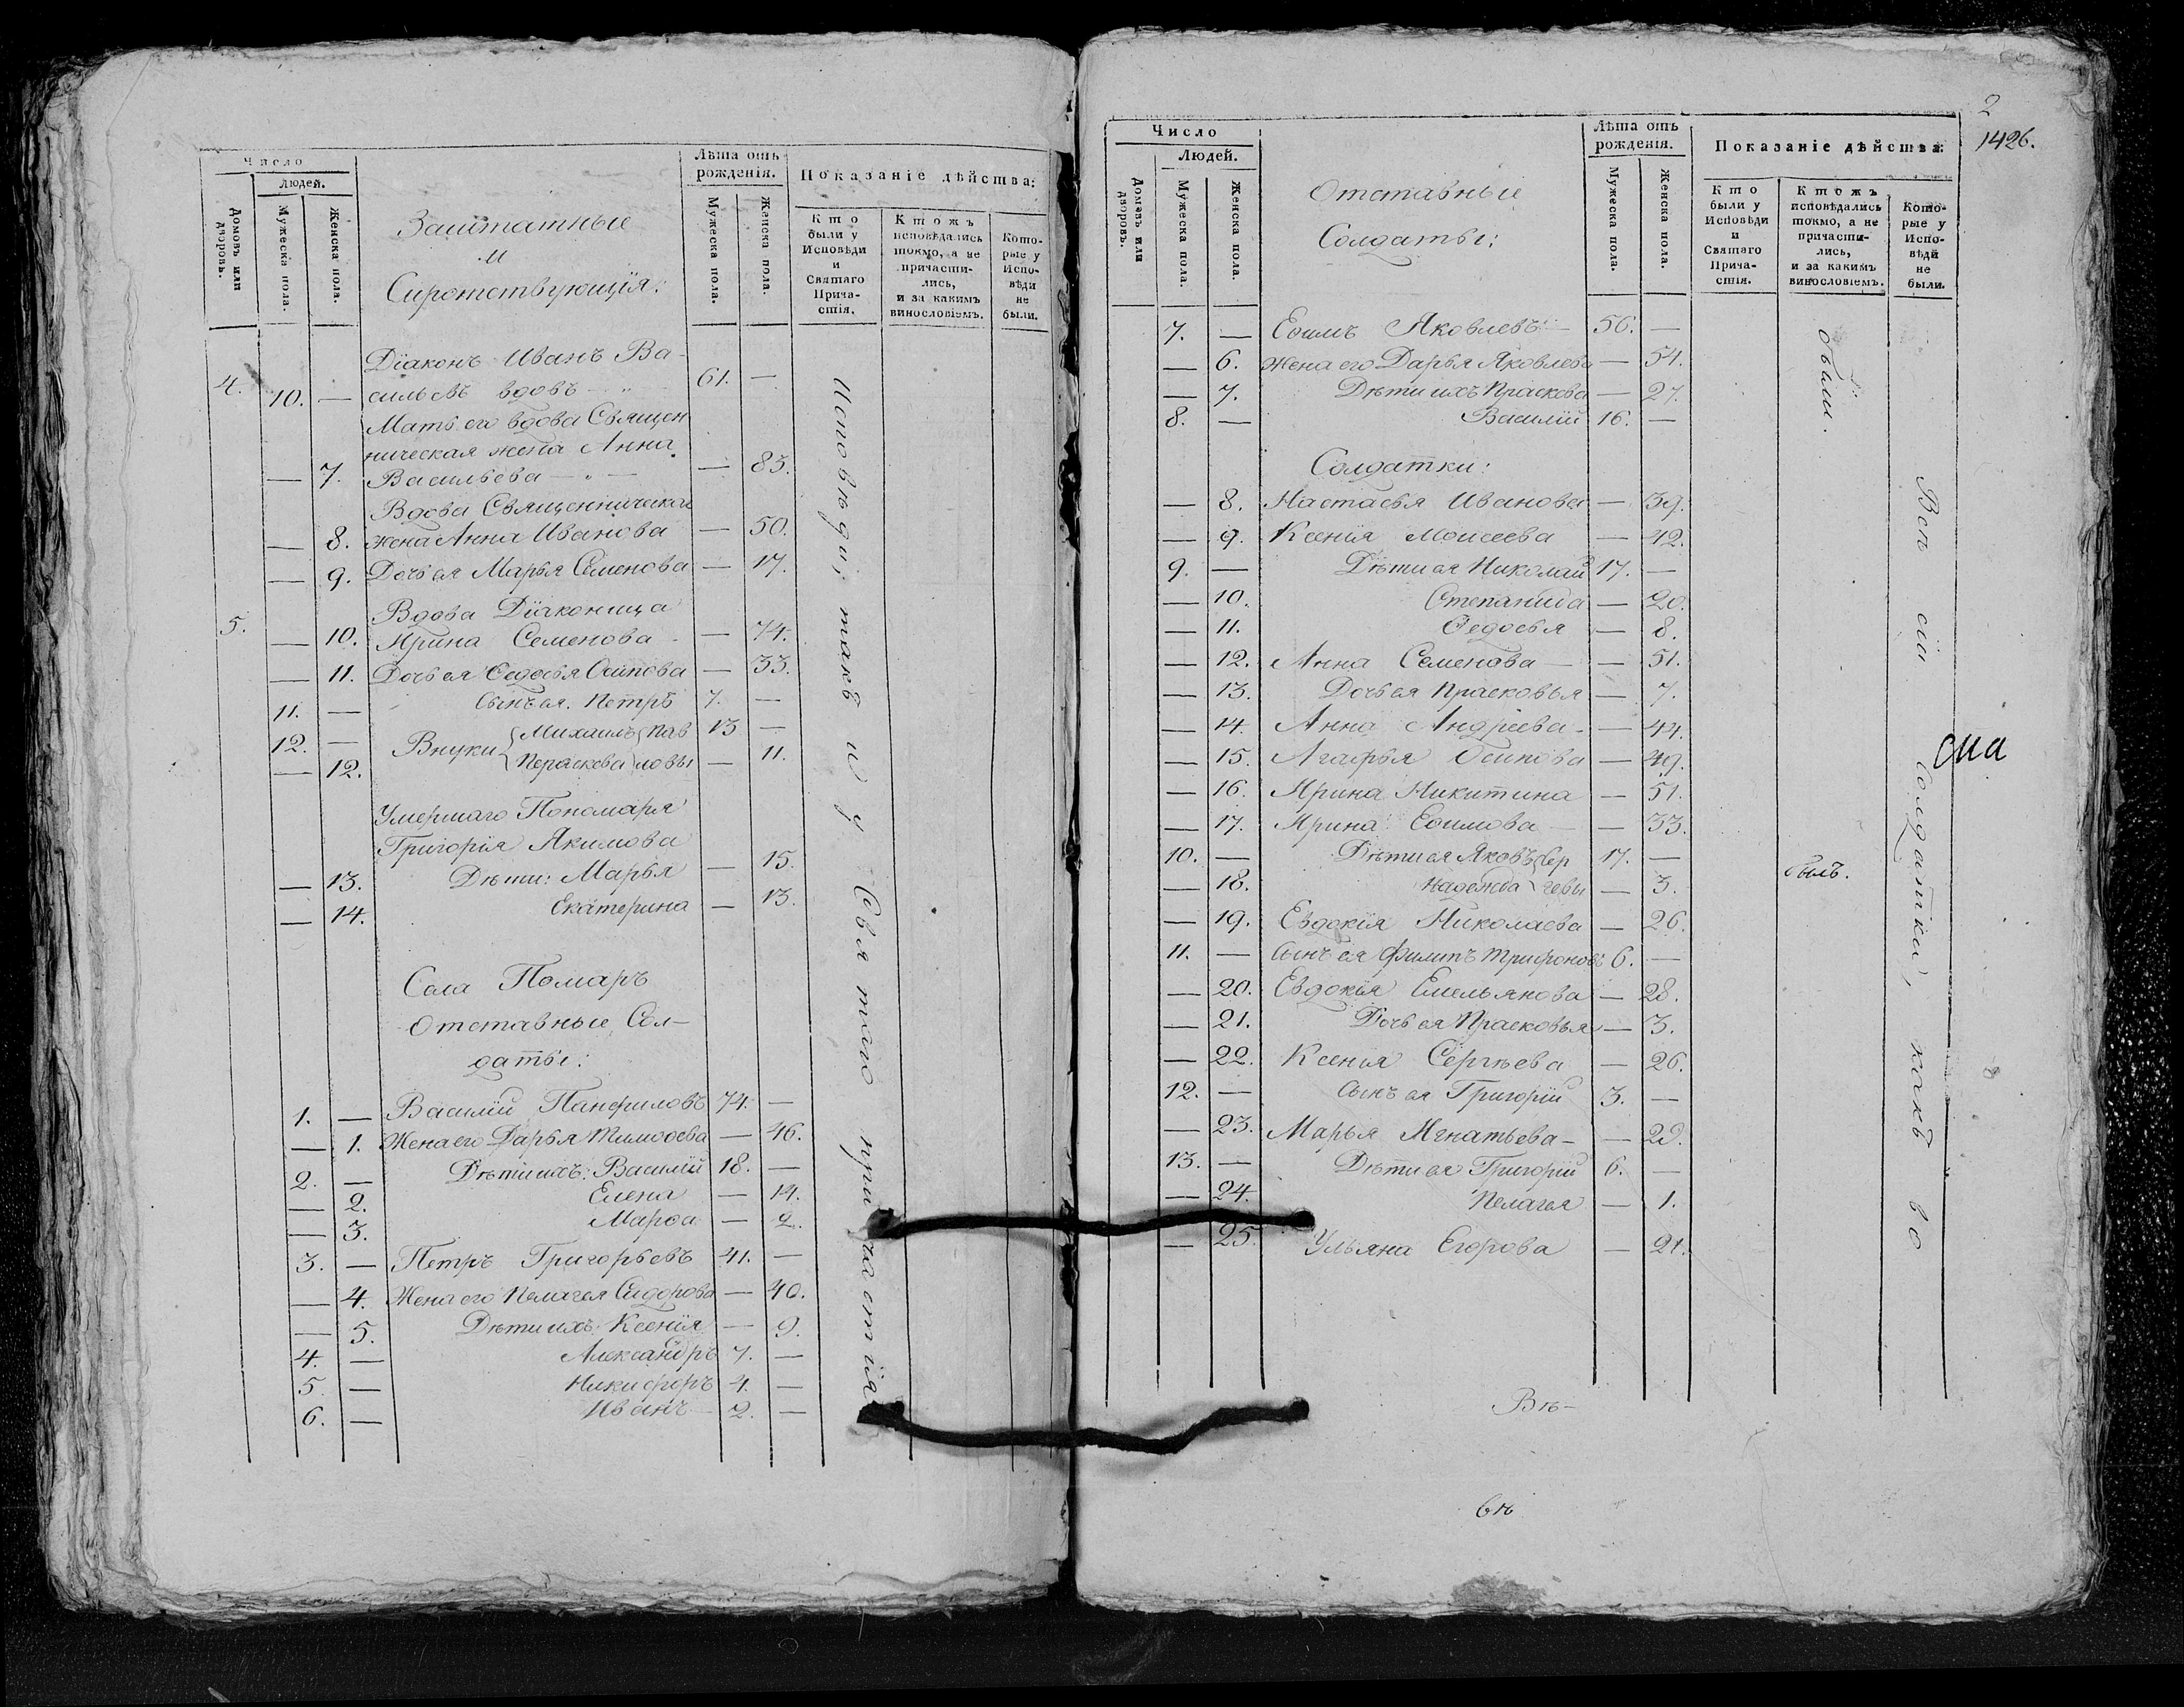 Число
Людей.
Домовъ или дворовъ.
Мужеска пола.
Женска пола.
Заштатные
и
Сиротствующія:
Лѣта отъ рожденія.
Мужеска пола.
Женска пола.
Показаніе дѣйства:
Кто были у Исповѣди и Святаго Прича-стія.
Ктожъ исповѣдались токмо, а не причасти-лись, и за какимъ винословіемъ.
Кото-рые у Испо-вѣди не были.
Діаконъ Иванъ Ва-
4. 10. — сильевъ вдовъ 61. —
Мать его вдова Священ
ническая жена Анна
— 7. Васильева — 83.
Вдова Священническая
— 8. жена Анна Иванова — 50.
— 9. Дочь ея Марья Семенова — 17.
Вдова Діаконица
5. — 10. Ирина Семенова — 74.
— 11. Дочь ея Ѳедосья Осипова — 33.
11. — Сынъ ея Петръ 7. —
12. — Внуки Михаилъ Пав 13 —
— 12. Пераскева ловы — 11.
Умершаго Пономаря
Григорія Якимова
— 13. Дѣти: Марья — 15.
— 14. Екатерина — 13.
Села Помаръ
Отставные Сол-
даты:
1. — Василій Панфиловъ 74. —
— 1. Жена его Дарья Тимоѳева — 46.
2. — Дѣти ихъ: Василій 18. —
— 2. Елена — 14.
— 3. Марѳа — 2.
3. — Петръ Григорьевъ 41. —
— 4. Жена его Пелагея Сидорова — 40.
— 5. Дѣти ихъ Ксенія — 9.
4. — Александръ 7. —
5. — Никифоръ 4. —
6. — Иванъ 2. —
Исповѣди, такъ и у Святаго причастія
2
1426.
Число
Людей.
Домовъ или дворовъ.
Мужеска пола.
Женска пола.
Отставные
Солдаты:
Лѣта отъ рожденія.
Мужеска пола.
Женска пола.
Показаніе дѣйства:
Кто были у Исповѣди и Святаго Прича-стія.
Ктожъ исповѣдались токмо, а не причасти-лись, и за какимъ винословіемъ.
Кото-рые у Испо-вѣди не были.
7. — Еѳимъ Яковлевъ 56. —
— 6. Жена его Дарья Яковлева — 54.
— 7. Дѣти ихъ Праскева — 27.
8. — Василій 16. —
Солдатки:
— 8. Настасья Иванова — 39.
— 9. Ксенія Моисеева — 42.
9. — Дѣти ея Николай 17. —
— 10. Степанида — 20.
— 11. Ѳедосья — 8.
— 12. Анна Семенова — 51.
— 13. Дочь ея Прасковья — 7.
— 14. Анна Андреева — 44.
— 15. Агафья Осипова — 49.
— 16. Ирина Никитина — 51.
— 17. Ирина Еѳимова — 33.
10. — Дѣти ея Яковъ Сер 17. —
— 18. Надежда геевы — 3.
— 19. Евдокія Николаева — 26.
11. — Сынъ ея Филипъ Трифоновъ 6. —
— 20. Евдокія Емельянова — 28.
— 21. Дочь ея Прасковья — 3.
— 22. Ксенія Сергѣева — 26.
12. — Сынъ ея Григорій 3. —
— 23. Марья Игнатьева — 29.
13. — Дѣти ея Григорій 6. —
— 24. Пелагея — 1.
— 25. Ульяна Егорова — 21.
были.
былъ.
Всѣ сіи солдатки, какъ во
Вѣ-